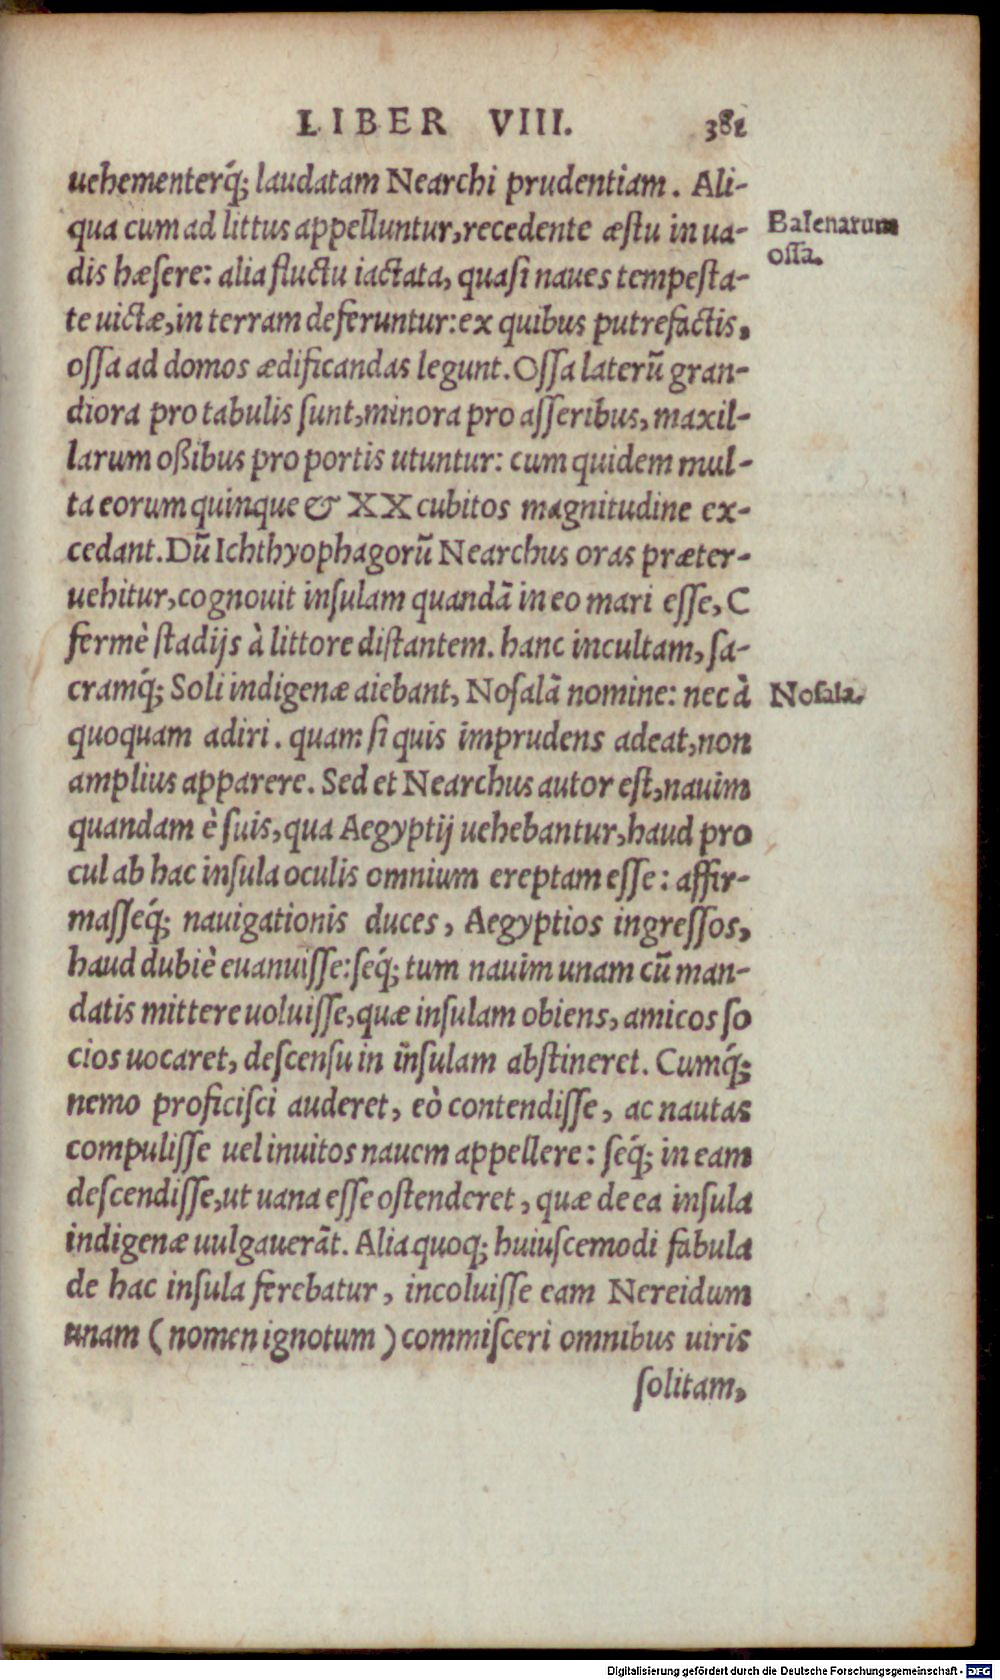 LIBER VIII. 381
uehementerq́; laudatam Nearchi prudentiam. Ali-
qua cum ad littus appelluntur, recedente æstu in ua-
Balenarum
ossa.
dis hæsere: alia fluctu iactata, quasi naues tempesta-
te uictæ, in terram deferuntur: ex quibus putrefactis,
ossa ad domos ædificandas legunt. Ossa laterũ gran-
diora pro tabulis sunt, minora pro asseribus, maxil-
larum oßibus pro portis utuntur: cum quidem mul-
ta eorum quinque & XX cubitos magnitudine ex-
cedant. Dũ Ichthyophagorũ Nearchus oras præter-
uehitur, cognouit insulam quandã in eo mari esse, C
fermè stadijs à littore distantem. hanc incultam, sa-
cramq́; Soli indigenæ aiebant, Nosalã nomine: nec à
Nosala.
quoquam adiri. quam si quis imprudens adeat, non
amplius apparere. Sed et Nearchus autor est, nauim
quandam è suis, qua Aegyptij uehebantur, haud pro
cul ab hac insula oculis omnium ereptam esse: affir-
masseq́; nauigationis duces, Aegyptios ingressos,
haud dubiè euanuisse: seq́; tum nauim unam cũ man-
datis mittere uoluisse, quæ insulam obiens, amicos so
cios uocaret, descensu in insulam abstineret. Cumq́;
nemo proficisci auderet, eò contendisse, ac nautas
compulisse uel inuitos nauem appellere: seq́; in eam
descendisse, ut uana esse ostenderet, quæ de ea insula
indigenæ uulgauerãt. Alia quoq; huiuscemodi fabula
de hac insula ferebatur, incoluisse eam Nereidum
unam (nomen ignotum) commisceri omnibus uiris
solitam,
Digitalisierung gefördert durch die Deutsche Forschungsgemeinschaft - DFG